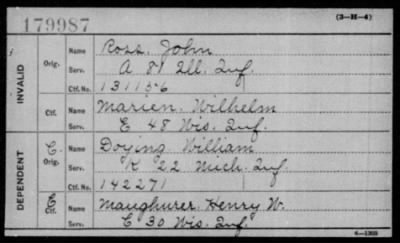 179987 (3-H-4)
INVALID
Orig. Name Ross, John
Serv. A 81 Ill. Inf.
Ctf. No. 131156
Ctf. Name Marien, Wilhelm
Serv. E 48 Wis. Inf.
DEPENDENT
C. Orig. Name Doying, William
Serv. K 22 Mich. Inf.
Ctf. No. 142271
C Ctf. Name Maughurer, Henry W.
Serv. C 30 Wis. Inf.